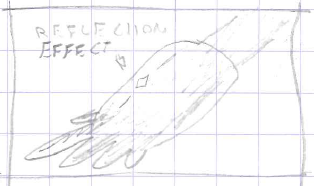 REFLECTION
EFFECT